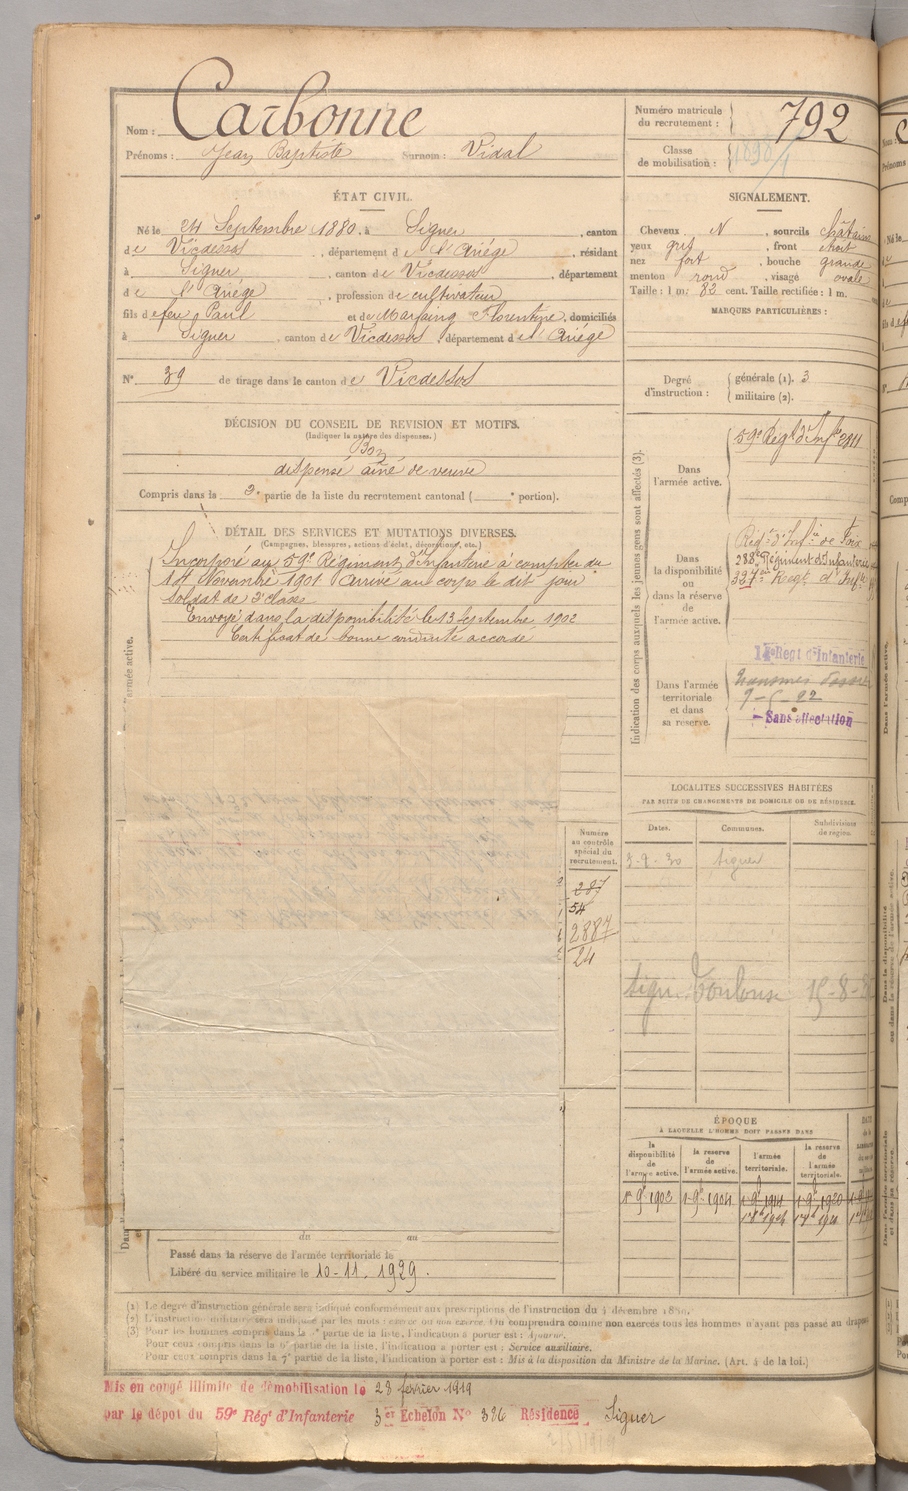 Nom : Carbonne
Prénoms : Jean Baptiste Surnom : Vidal
Numéro matricule du recrutement : 792
Classe de mobilisation : 1898/1
ÉTAT CIVIL.
Né le 24 Septembre 1880, à Siguer, canton
de Vicdessos, département de l'Ariège, résidant
à Siguer, canton de Vicdessos, département
de l'Ariège, profession de cultivateur
fils de feu Paul et de Marfaing Florentine, domiciliés
à Siguer, canton de Vicdessos, département de l'Ariège
N° 39 de tirage dans le canton de Vicdessos
SIGNALEMENT.
Cheveux N, sourcils châtains
yeux gris, front étroit
nez fort, bouche grande
menton rond, visage ovale
Taille : 1 m. 82 cent. Taille rectifiée : 1 m.
MARQUES PARTICULIÈRES :
Degré d'instruction : générale (1). 3
militaire (2).
DÉCISION DU CONSEIL DE REVISION ET MOTIFS.
(Indiquer la nature des dispenses.)
Bon
dispensé aîné de veuve
Compris dans la 2e partie de la liste du recrutement cantonal ( e portion).
DÉTAIL DES SERVICES ET MUTATIONS DIVERSES.
(Campagnes, blessures, actions d'éclat, décorations, etc.)
Incorporé au 59e Régiment d'Infanterie à compter du
Novembre 1901 Arrivé au corps le dit jour
soldat de 2e classe
Envoyé dans la disponibilité le 13 Septembre 1902
Certificat de bonne conduite accordé
armée active.
Indication des corps auxquels les jeunes gens sont affectés (3).
Dans l'armée active.
59e Régt d'Infie
Dans la disponibilité ou dans la réserve de l'armée active.
Régt d'Infie de Foix
288e Régiment d'Infanterie
337e Regt d'Infie
Dans l'armée territoriale et dans sa reserve.
Regt d'Infanterie
Sans affectation
LOCALITES SUCCESSIVES HABITÉES
PAR SUITE DE CHANGEMENTS DE DOMICILE OU DE RÉSIDENCE.
Dates. Communes. Subdivisions de région.
Siguer
Toulouse
Numéro au contrôle spécial du recrutement.
287
54
2887
24
ÉPOQUE
À LAQUELLE L'HOMME DOIT PASSER DANS
la disponibilité de l'armée active.
la réserve de l'armée active.
l'armée territoriale.
la réserve de l'armée territoriale.
1r 9bre 1902
1 9bre 1904
1 9bre 1914
1 9bre 1920
du au
Passé dans la réserve de l'armée territoriale le
Libéré du service militaire le 10-11. 1929.
(1) Le degré d'instruction générale sera indiqué conformément aux prescriptions de l'instruction du 4 décembre 1889.
(2) L'instruction militaire sera indiquée par les mots : exercé ou non exercé. On comprendra comme non exercés tous les hommes n'ayant pas passé au drapeau
(3) Pour les hommes compris dans la partie de la liste, l'indication à porter est : Ajourné.
Pour ceux compris dans la 6e partie de la liste, l'indication à porter est : Service auxiliaire.
Pour ceux compris dans la 7e partie de la liste, l'indication à porter est : Mis à la disposition du Ministre de la Marine. (Art. 4 de la loi.)
Mis en congé illimité de démobilisation le 28 février 1919
par le dépôt du 59e Régt d'Infanterie 3er Echelon N° 386 Résidence Siguer